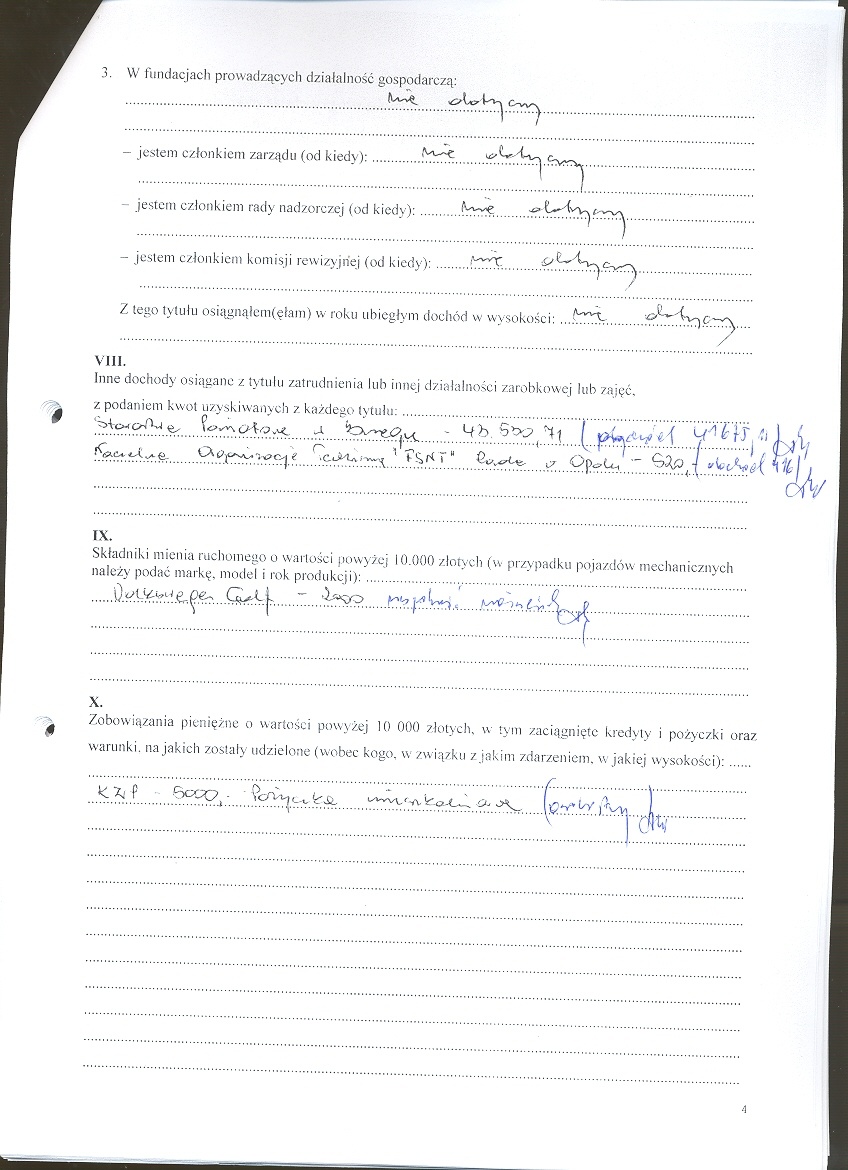 3. W fundacjach prowadzących działalność gospodarczą:
nie dotyczy
– jestem członkiem zarządu (od kiedy): nie dotyczy
– jestem członkiem rady nadzorczej (od kiedy): nie dotyczy
– jestem członkiem komisji rewizyjnej (od kiedy): nie dotyczy
Z tego tytułu osiągnąłem(ęłam) w roku ubiegłym dochód w wysokości: nie dotyczy
VIII.
Inne dochody osiągane z tytułu zatrudnienia lub innej działalności zarobkowej lub zajęć,
z podaniem kwot uzyskiwanych z każdego tytułu:
Starostwo Powiatowe w Brzegu -
Naczelna Organizacja Techniczna "FSNT" Rada w Opolu – 520,- (dochód 416)
IX.
Składniki mienia ruchomego o wartości powyżej 10.000 złotych (w przypadku pojazdów mechanicznych
należy podać markę, model i rok produkcji):
Volkswagen Golf – 2000 wspólność
X.
Zobowiązania pieniężne o wartości powyżej 10 000 złotych, w tym zaciągnięte kredyty i pożyczki oraz
warunki, na jakich zostały udzielone (wobec kogo, w związku z jakim zdarzeniem, w jakiej wysokości): ......
KZP – 5000,- Pożyczka mieszkaniowa (osobisty
4